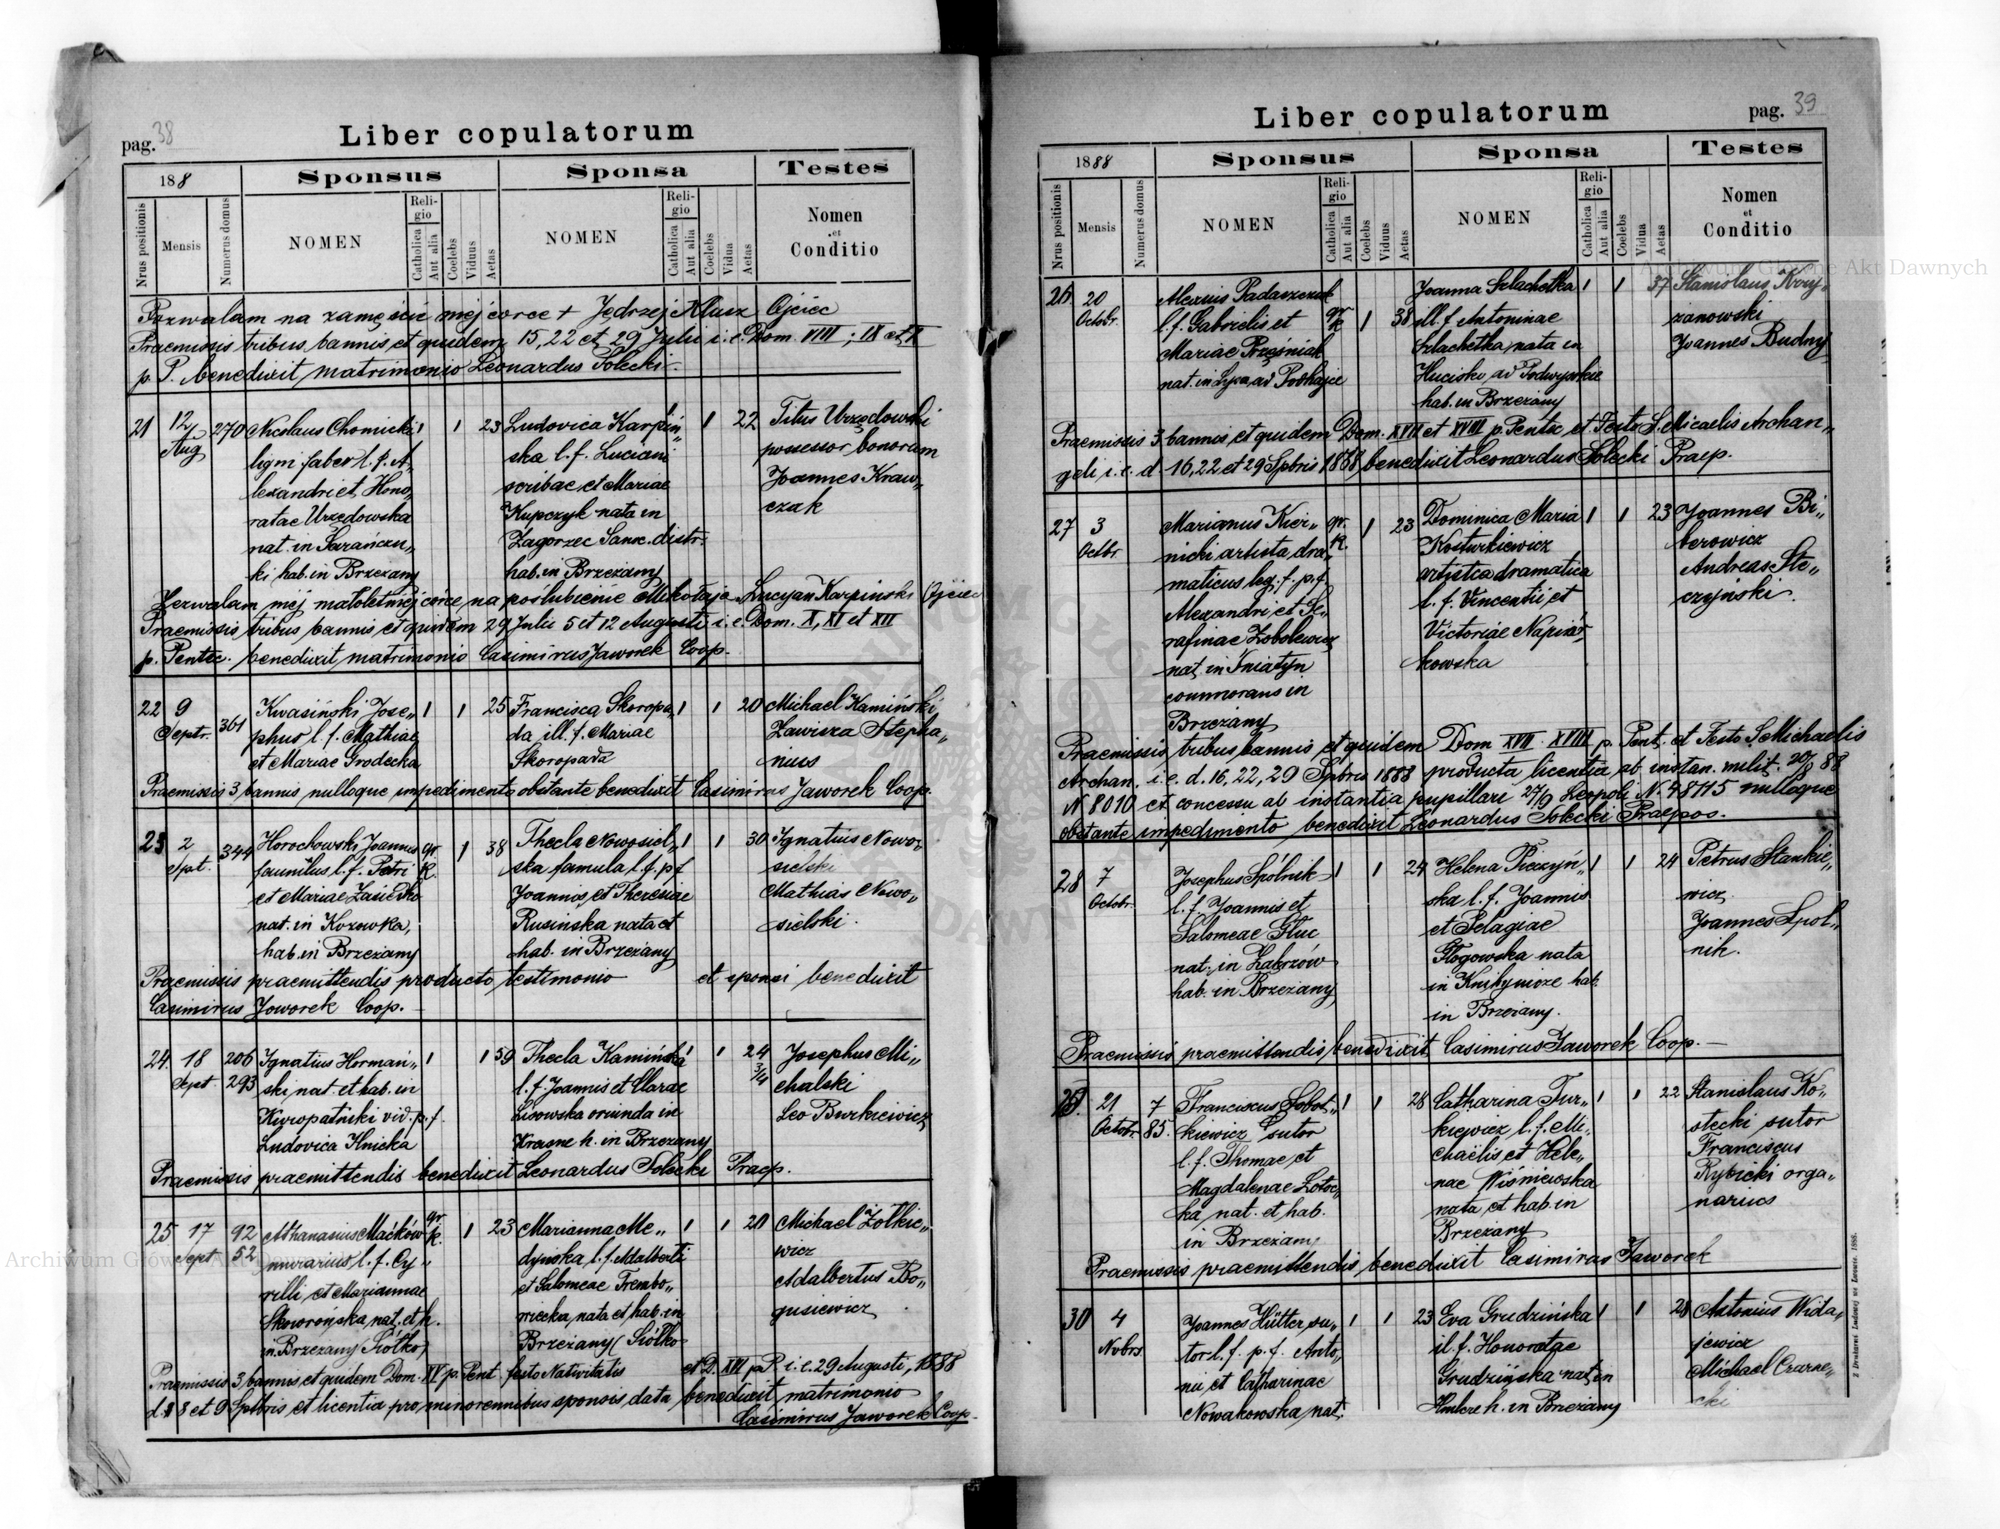 pag. 38
Liber copulatorum
188
Sponsus
Sponsa
Testes
Nrus positionis
Mensis
Numerus domus
NOMEN
Religio
Catholica
Aut alia
Coelebs
Viduus
Aetas
NOMEN
Religio
Catholica
Aut alia
Coelebs
Vidua
Aetas
Nomen
et
Conditio
Pozwalam na zamęście mej corce + Jędrzej Klusz Ojciec
Praemissis tribus bannis et quidem 15, 22 et 29 Julii i. e. Dom. VIII; IX et X
p. P. benedixit matrimonio Leonardus Solecki
21 12 Aug 270
Nicolaus Chomicki
ligni faber l. f. A,,
lexandri et Hono,,
ratae Urzędowska
nat. in Sarańczu,,
ki hab. in Brzeżany
1 1 23
Ludovica Karpiń,,
ska l. f. Luciani
scribae et Mariae
Kupczyk nata in
Zagorzec Sanoc. distr.
hab. in Brzeżany
1 22
Titus Urzędowski
possessor bonorum
Joannes Kraw,,
czak
Zezwalam mej małoletniej córce na poślubienie Mikołaja Lucyan Karpiński Ojciec
Praemissis tribus bannis et quidem 29 Julii 5 et 12 Augusti i. e. Dom. X, XI et XII
p. Pentec. benedixit matrimonio Casimirus Jaworek Coop.
22 9 Septr. 361
Kwasiński Jose,,
phus l. f. Mathiae
et Mariae Grodecka
1 1 25
Francisca Skoropa,,
da ill. f. Mariae
Skoropada
1 1 20
Michael Kamiński
Zawisza Stepha,,
nius
Praemissis 3 bannis nulloque impedimento obstante benedixit Casimirus Jaworek Coop.
23 2 Spt. 344
Horochowski Joannes
famulus l. f. Petri
et Mariae
nat. in Kozowka,
hab. in Brzeżany
gr. R. 1 38
Thecla Nowosiel,,
ska famula l. f. p. f.
Joannis et Theresiae
Rusinska nata et
hab. in Brzeżany
1 1 30
Ignatius Nowo,,
sielski
Mathias Nowo,,
sielski.
Praemissis praemittendis producto testimonio et sponsi benedixit
Casimirus Jaworek Coop.
24 18 Sept 206 293
Ignatius Horman,,
ski nat. et hab. in
Kuropatniki vid. p. f.
Ludovica Ilnicka
1 1 59
Thecla Kamińska
l. f. Joannis et Clarae
Lisowska oriunda in
Krasne h. in Brzeżany
1 1 24 3/4
Josephus Mi,,
chalski
Leo Burkiewicz
Praemissis praemittendis benedixit Leonardus Solecki Praep.
25 17 Sept 92 52
Athanasius Maćków
murarius l. f. Cy,,
rilli et Mariannae
Skworońska nat. et h.
in Brzeżany Siółko
gr. k. 1 23
Marianna Me,,
dyńska l. f. Adalberti
et Salomeae Trembo,,
wiecka nata et hab. in
Brzeżany Siółko
1 1 21
Michael Zółkie,,
wicz
Adalbertus Bo,,
gusiewicz
Praemissis 3 bannis et quidem Dom. XV p. Pent festo Nativitatis et D. XVI p. P. i. e. 29 Augusti, 1888
d. 8 et 9 Sptbris et licentia pro minorennibus sponsis data benedixit matrimonio
Casimirus Jaworek Coop.
pag. 39
Liber copulatorum
1888
Sponsus
Sponsa
Testes
Nrus positionis
Mensis
Numerus domus
NOMEN
Religio
Catholica
Aut alia
Coelebs
Viduus
Aetas
NOMEN
Religio
Catholica
Aut alia
Coelebs
Vidua
Aetas
Nomen
et
Conditio
26 20 Octobr.
Alexius Padaszczuk
l. f. Gabrielis et
Mariae Prześniak
nat. in Lypa ad Podhajce
gr. k. 1 38
Joanna Szlachetka
ill. f. Antoninae
Szlachetka nata in
Hucisko ad Podwysokie
hab. in Brzeżany
1 1 37
Stanislaus Krzy,,
zanowski
Joannes Budny
Praemissis 3 bannis et quidem Dom. XVII et XVIII p. Pentec et Festo S. Micaelis Archan,,
geli i. e. d. 16, 22 et 29 Spbris 1888 benedixit Leonardus Solecki Praep.
27 3 Octbr.
Marianus Kier,,
nicki artista dra,,
maticus leg. f. p. f.
Alexandri et Se,,
rafinae Zobolewicz
nat. in Sniatyn
commorans in
Brzeżany
gr. R. 1 23
Dominica Maria
Kosturkiewicz
artistca dramatica
l. f. Vincentii et
Victoriae Napiór,,
kowska
1 1 23
Joannes Bi,,
berowicz
Andreas Ste,,
czyński.
Praemissis tribus bannis et quidem Dom XVII XVIII p. Pent. et Festo S. Michaelis
Archan. i. e. d. 16, 22, 29 Spbris 1888 producta licentia ab instan. milit. 20/8 88
N 8010 et concessu ab instantia pupillari 27/9 Leopoli N. 48115 nulloque
obstante impedimento benedixit Leonardus Solecki Praepos.
28 7 Octobr.
Josephus Spólnik
l. f. Joannis et
Salomeae Głuc
nat. in Zabrzów
hab. in Brzeżany
1 1 24
Helena Piczyń,,
ska l. f. Joannis
et Pelagiae
Głogowska nata
in Knihynicze hab.
in Brzeżany.
1 1 24
Petrus Stankie,,
wicz
Joannes Spol,,
nik.
Praemissis praemittendis benedixit Casimirus Jaworek Coop.
29. 21 Octobr. 7 85.
Franciscus Sobot,,
kiewicz sutor
l. f. Thomae et
Magdalenae Zotoc,,
ka nat. et hab.
in Brzeżany
1 1 28
Catharina Tur,,
kiewicz l. f. Mi,,
chaëlis et Hele,,
nae Wiśniewska
nata et hab. in
Brzeżany
1 1 22
Stanislaus Ko,,
stecki sutor
Franciscus
Rybicki orga,,
narius
Praemissis praemittendis benedixit Casimirus Jaworek
30 4 Nvbrs
Joannes Hütter su,,
tor l. f. p. f. Anto,,
nii et Catharinae
Nowakowska nat.
1 1 23
Eva Grudzińska
il. f. Honoratae
Grudzińska nat. in
h. in Brzeżany
1 1 28
Antonius Wida,,
jewicz
Michael Czarne,,
cki
Z Drukarni Ludowej we Lwowie. 1886.
Archiwum Główne Akt Dawnych
Archiwum Główne Akt Dawnych